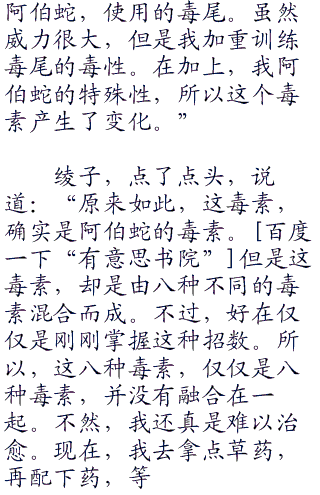 阿伯蛇，使用的毒尾。虽然
威力很大，但是我加重训练
毒尾的毒性。在加上，我阿
伯蛇的特殊性，所以这个毒
素产生了变化。”
绫子，点了点头，说
道：“原来如此，这毒素，
确实是阿伯蛇的毒素。[百度
一下“有意思书院”]但是这
毒素，却是由八种不同的毒
素混合而成。不过，好在仅
仅是刚刚掌握这种招数。所
以，这八种毒素，仅仅是八
种毒素，并没有融合在一
起。不然，我还真是难以治
愈。现在，我去拿点草药，
再配下药，等